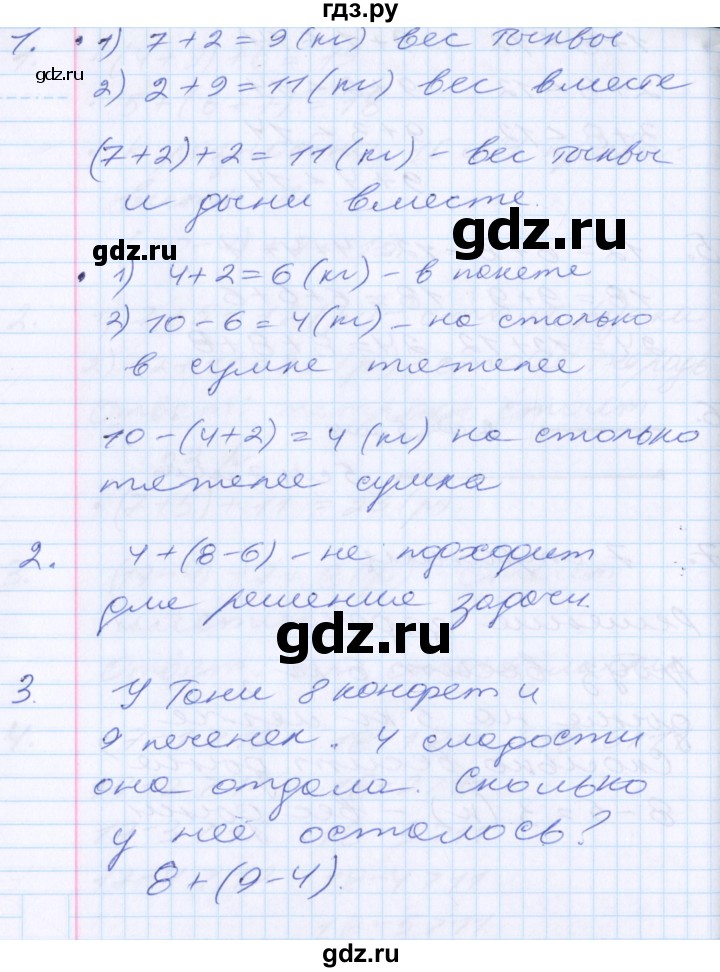 гдз.ру
1. • 1) 7 + 2 = 9 (кг) вес тыквы
gdz.ru
2) 2 + 9 = 11 (кг) вес вместе
(7 + 2) + 2 = 11 (кг) – вес тыквы
и дыни вместе.
gdz.ru
gdz.ru
• 1) 4 + 2 = 6 (кг) – в пакете
2) 10 – 6 = 4 (кг) – на столько
в сумке тяжелее
10 – (4 + 2) = 4 (кг) на столько
тяжелее сумка
2. 4 + (8 – 6) – не подходит
для решения задачи.
gdz.ru
3. У Тони 8 конфет и
9 печенек. 4 сладости
она отдала. Сколько
у неё осталось?
8 + (9 – 4).
gdz.ru